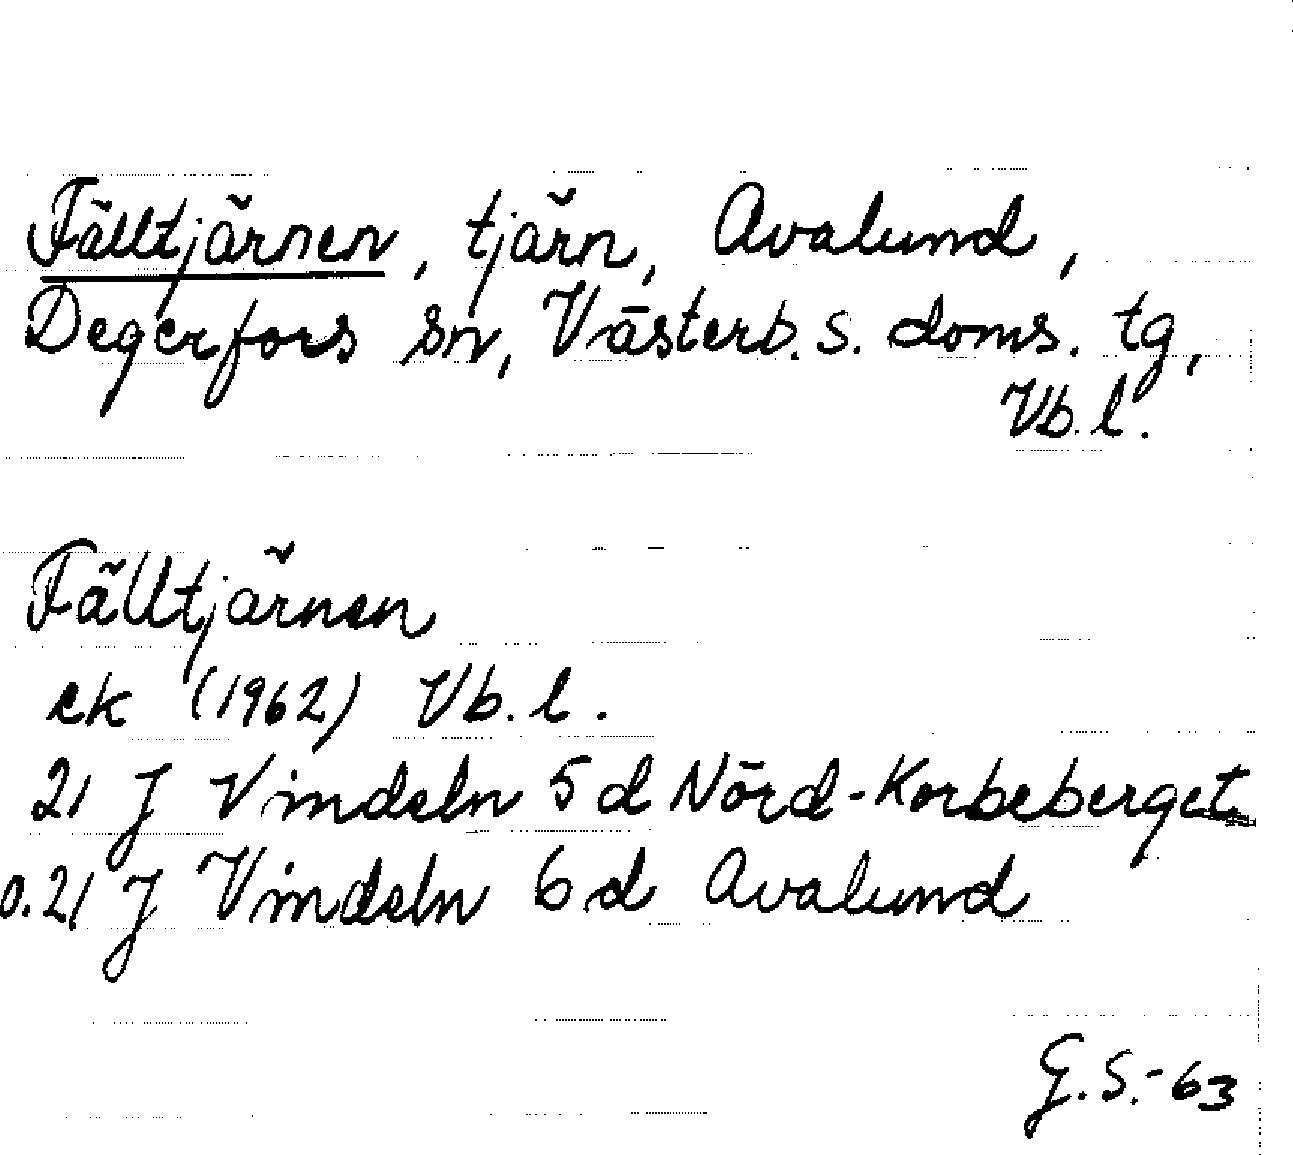 Fälltjärnen, tjärn, Avalund,
Degerfors sn, Västerb. s. doms. tg,
Vb. l.
Fälltjärnen
ek (1962) Vb. l.
21 J Vindeln 5 d Nörd-Korbeberget
o. 21 J Vindeln 6 d Avalund
G. S. - 63